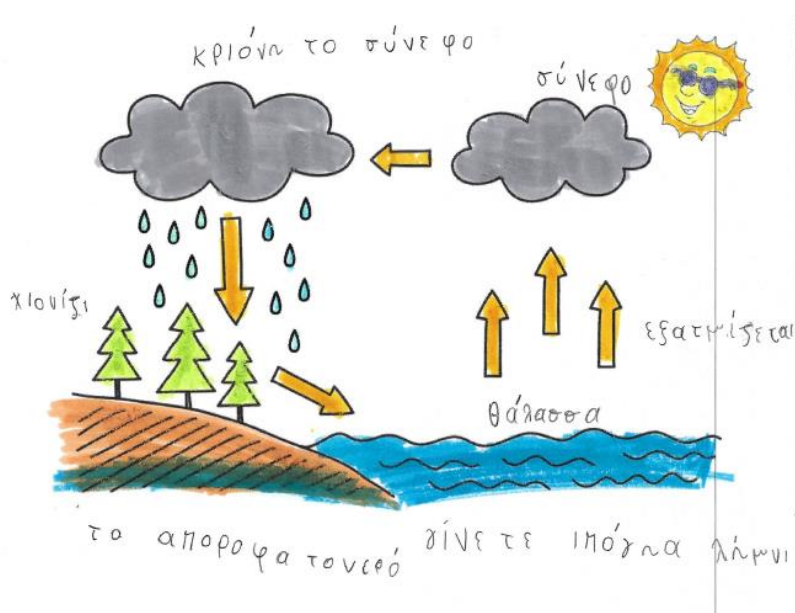 κριόνη το σύνεφο
σύνεφο
χιονίζι
εξατμίζεται
θάλασσα
το αποροφα τονερό γίνετε ιπόγηα λήμνι